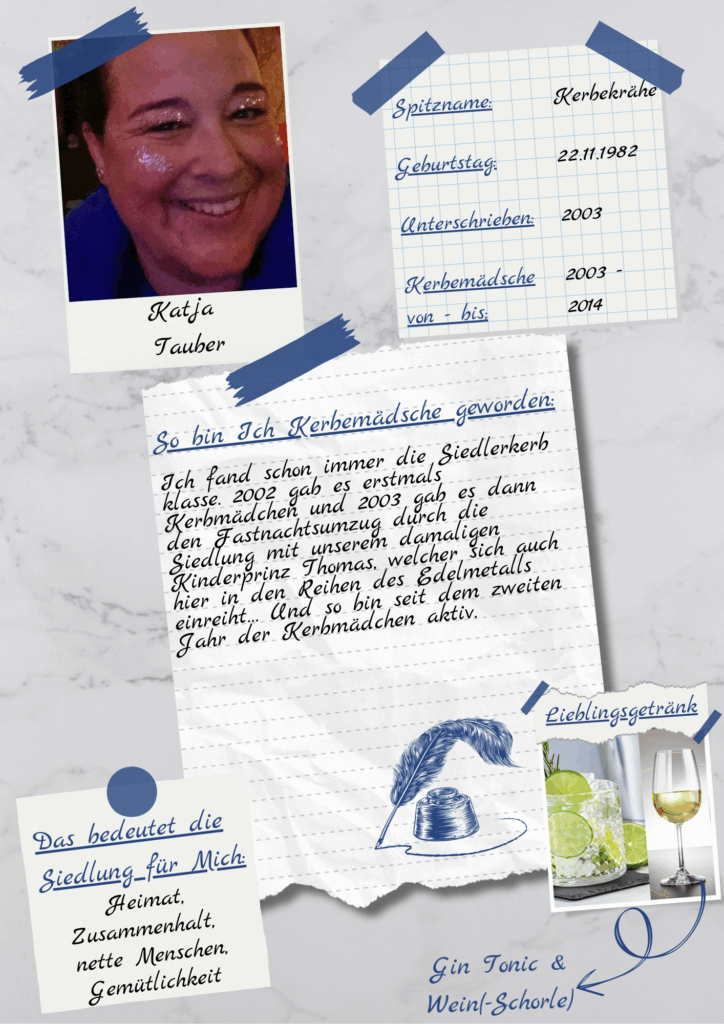 Katja
Tauber
Spitzname: Kerbekrähe
Geburtstag: 22.11.1982
Unterschrieben: 2003
Kerbemädsche 2003 -
von - bis: 2014
So bin Ich Kerbemädsche geworden:
Ich fand schon immer die Siedlerkerb
klasse. 2002 gab es erstmals
Kerbmädchen und 2003 gab es dann
den Fastnachtsumzug durch die
Siedlung mit unserem damaligen
Kinderprinz Thomas, welcher sich auch
hier in den Reihen des Edelmetalls
einreiht... Und so bin seit dem zweiten
Jahr der Kerbmädchen aktiv.
Lieblingsgetränk
Das bedeutet die
Siedlung für Mich:
Heimat,
Zusammenhalt,
nette Menschen,
Gemütlichkeit
Gin Tonic &
Wein(-Schorle)